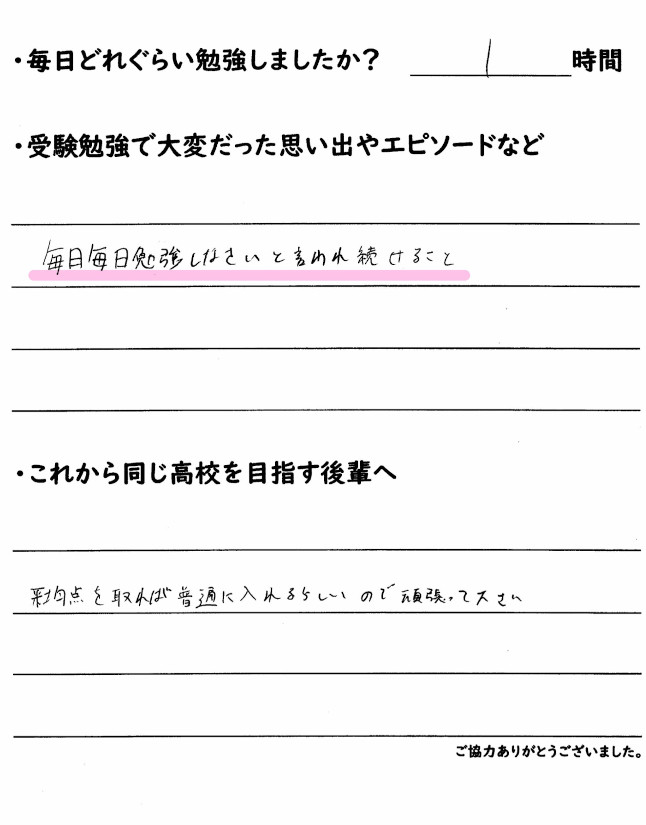 ・毎日どれぐらい勉強しましたか? 1 時間
・受験勉強で大変だった思い出やエピソードなど
毎日毎日勉強しなさいと言われ続けること
・これから同じ高校を目指す後輩へ
均点を取れば普通に入れるらしいので頑張って下さい
ご協力ありがとうございました。